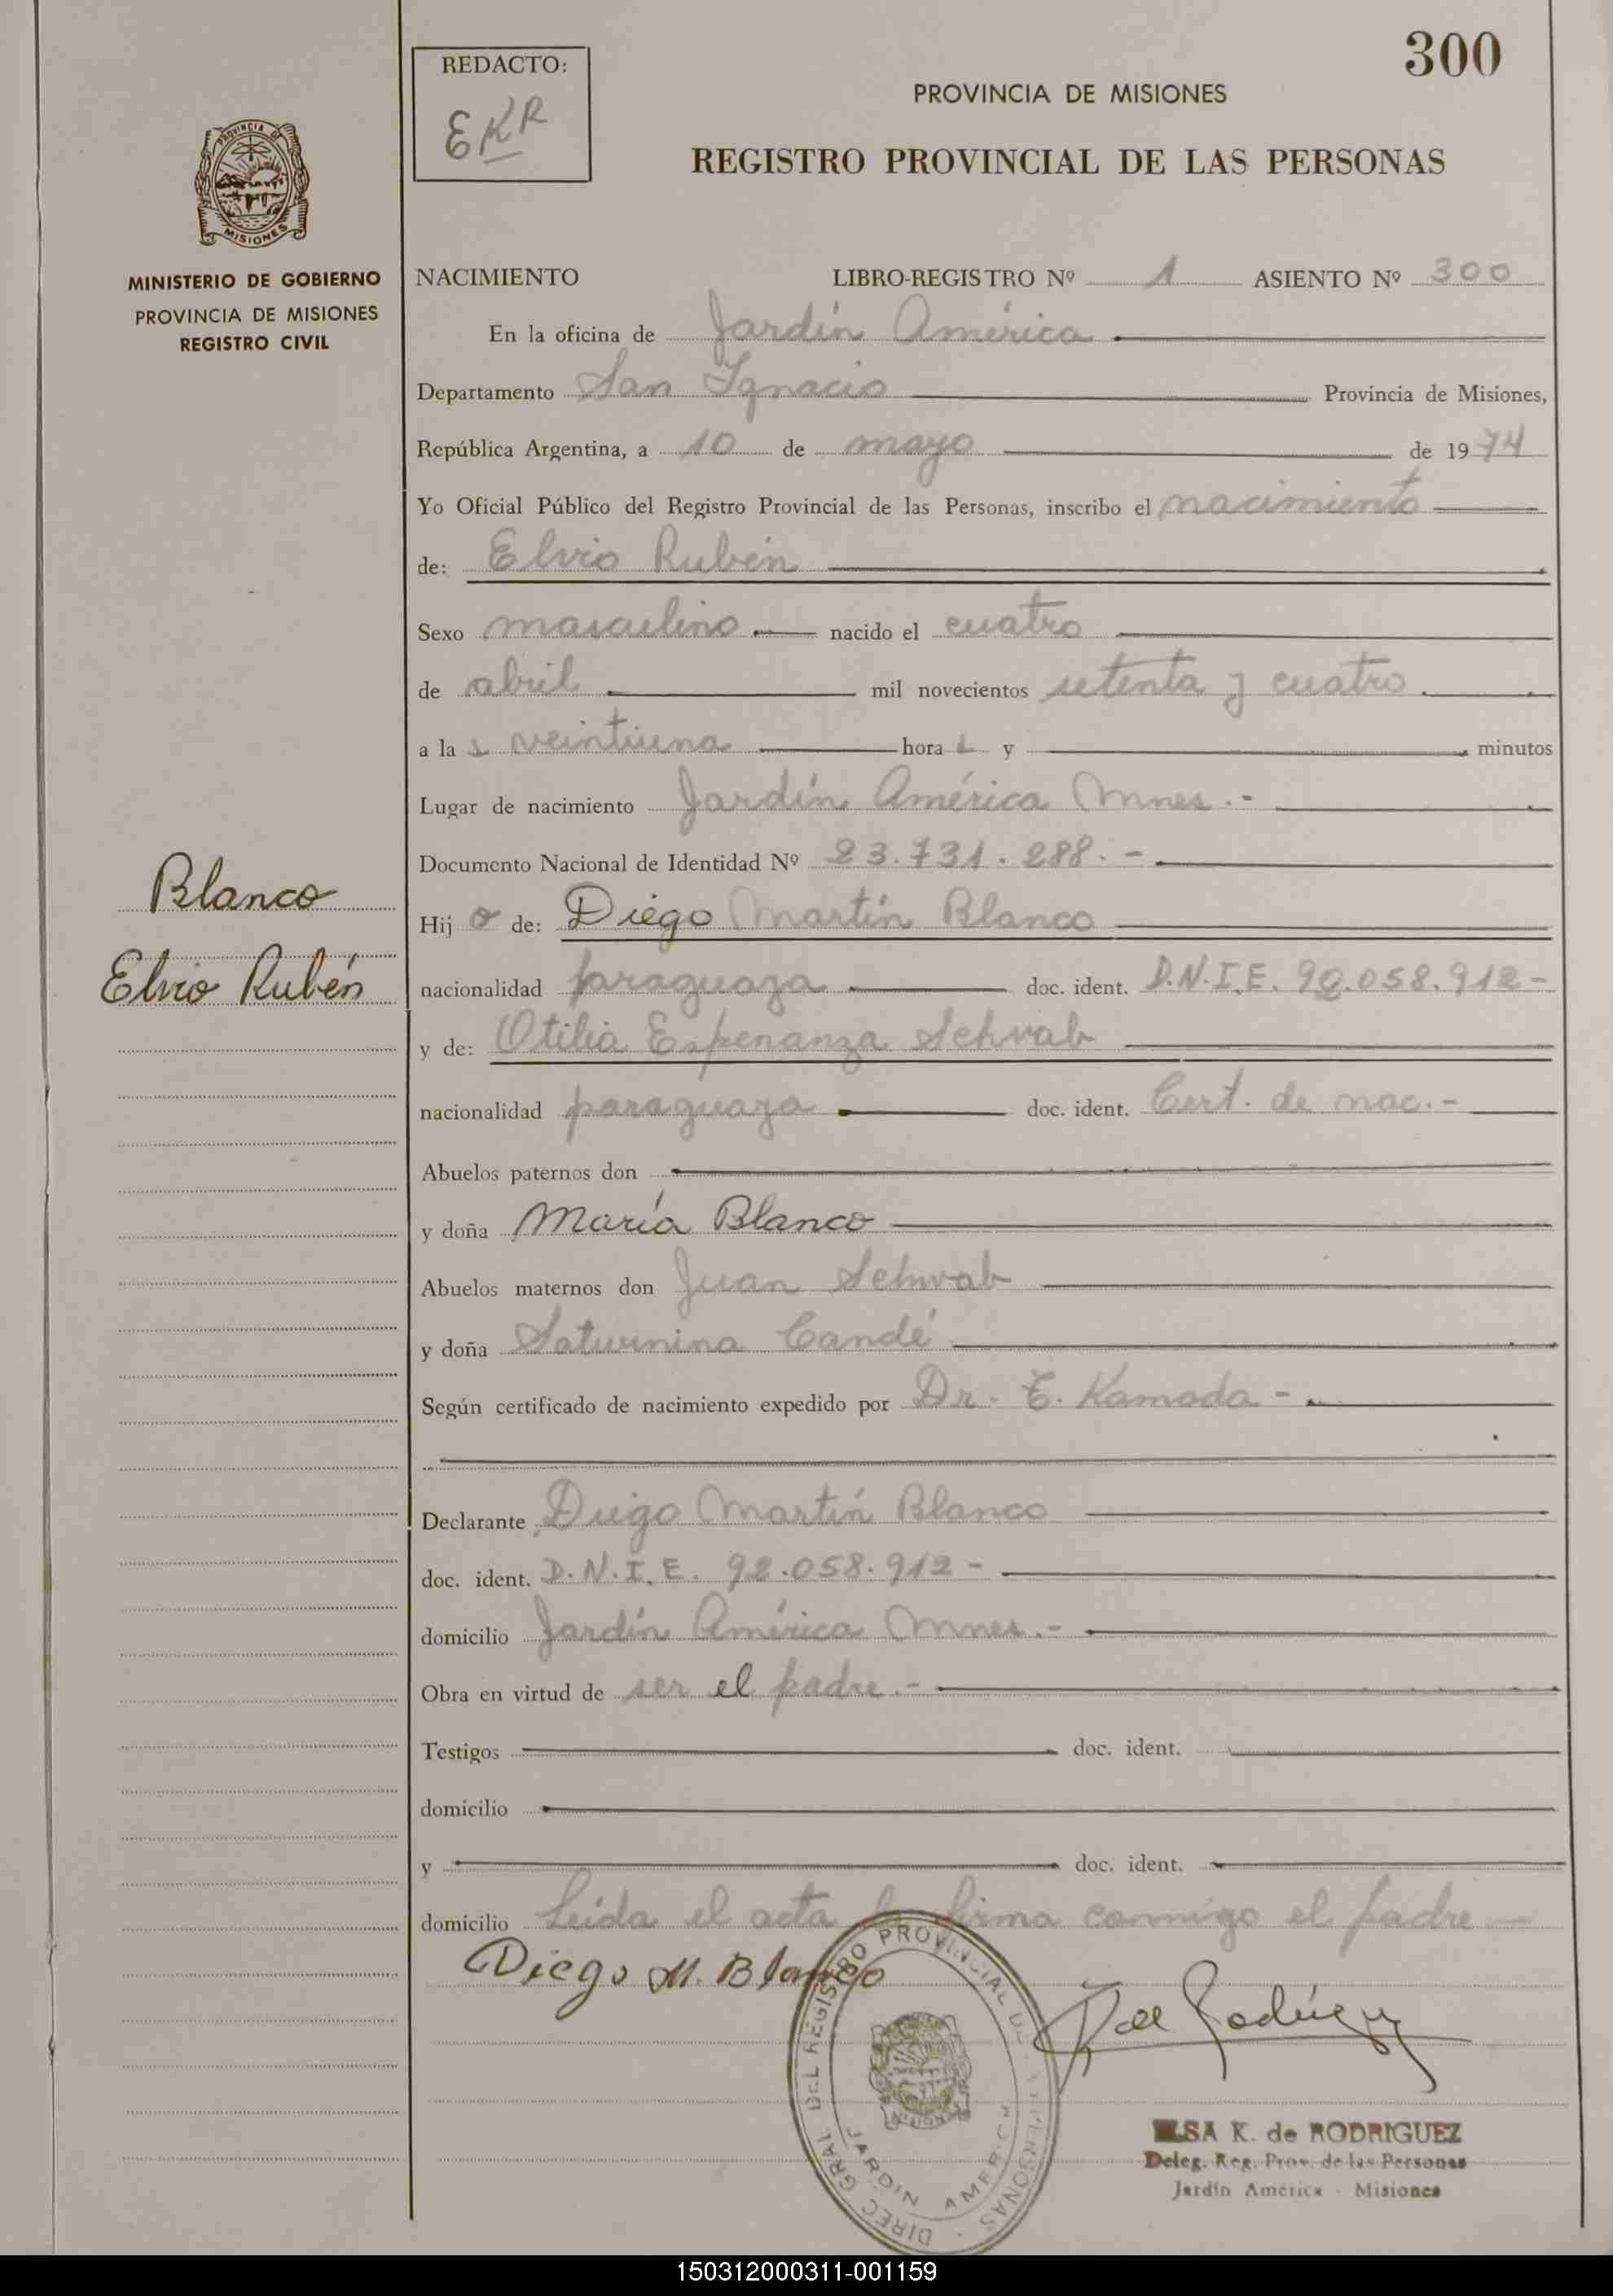 300
REDACTO:
EKR
PROVINCIA DE MISIONES
REGISTRO PROVINCIAL DE LAS PERSONAS
PROVINCIA DE
MISIONES
MINISTERIO DE GOBIERNO
PROVINCIA DE MISIONES
REGISTRO CIVIL
NACIMIENTO LIBRO-REGISTRO Nº 1 ASIENTO Nº 300
En la oficina de Jardín América
Departamento San Ignacio Provincia de Misiones,
República Argentina, a 10 de mayo de 1974
Yo Oficial Público del Registro Provincial de las Personas, inscribo el nacimiento
de: Elvio Rubén
Sexo masculino nacido el cuatro
de abril mil novecientos setenta y cuatro
a la s veintiuna hora s y minutos
Lugar de nacimiento Jardín América Mnes.-
Documento Nacional de Identidad Nº 23.731.288.-
Blanco
Elvio Rubén
Hij o de: Diego Martín Blanco
nacionalidad paraguaya doc. ident. D.N.I.E. 92.058.912-
y de: Otilia Esperanza Schvab
nacionalidad paraguaya doc. ident. Cert. de nac.-
Abuelos paternos don
y doña María Blanco
Abuelos maternos don Juan Schvab
y doña Saturnina Candé
Según certificado de nacimiento expedido por Dr. E. Kamada-
Declarante Diego Martín Blanco
doc. ident. D.N.I.E. 92.058.912-
domicilio Jardín América Mnes.-
Obra en virtud de ser el padre.-
Testigos doc. ident.
domicilio
y doc. ident.
domicilio Leída el acta la firma conmigo el padre-
Diego M. Blanco
DIREC GRAL DEL REGISTRO PROVINCIAL DE LAS PERSONAS
MISIONES
JARDIN AMERICA
ELSA K. de RODRIGUEZ
Deleg. Reg. Prov. de las Personas
Jardín America - Misiones
150312000311-001159